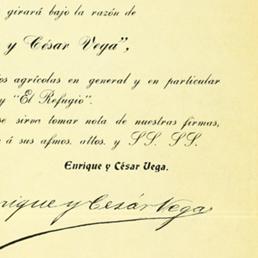 girará bajo la razón de
y César Vega",
os agrícolas en general y en particular
y "El Refugio".
se sirva tomar nota de nuestras firmas,
á sus afmos. attos. y SS. SS.
Enrique y César Vega.
nrique y Cezár Vega